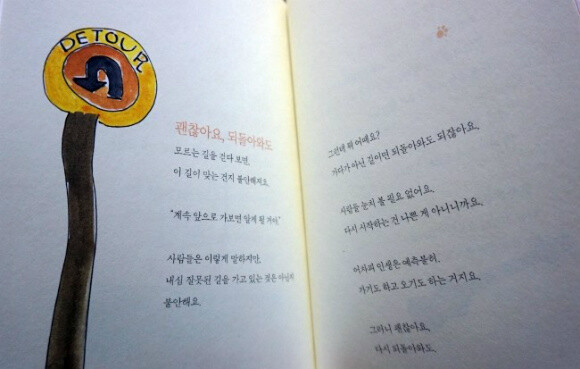 DETOUR
괜찮아요, 되돌아와도
모르는 길을 걷다 보면,
이 길이 맞는 건지 불안해져요.
"계속 앞으로 가보면 알게 될 거야."
사람들은 이렇게 말하지만,
내심 잘못된 길을 가고 있는 것은 아닌지
불안해요.
그런데 뭐 어때요?
가다가 아닌 길이면 되돌아와도 되잖아요.
사람들 눈치 볼 필요 없어요.
다시 시작하는 건 나쁜 게 아니니까요.
어차피 인생은 예측불허.
가기도 하고 오기도 하는 거지요.
그러니 괜찮아요.
다시 되돌아와도.